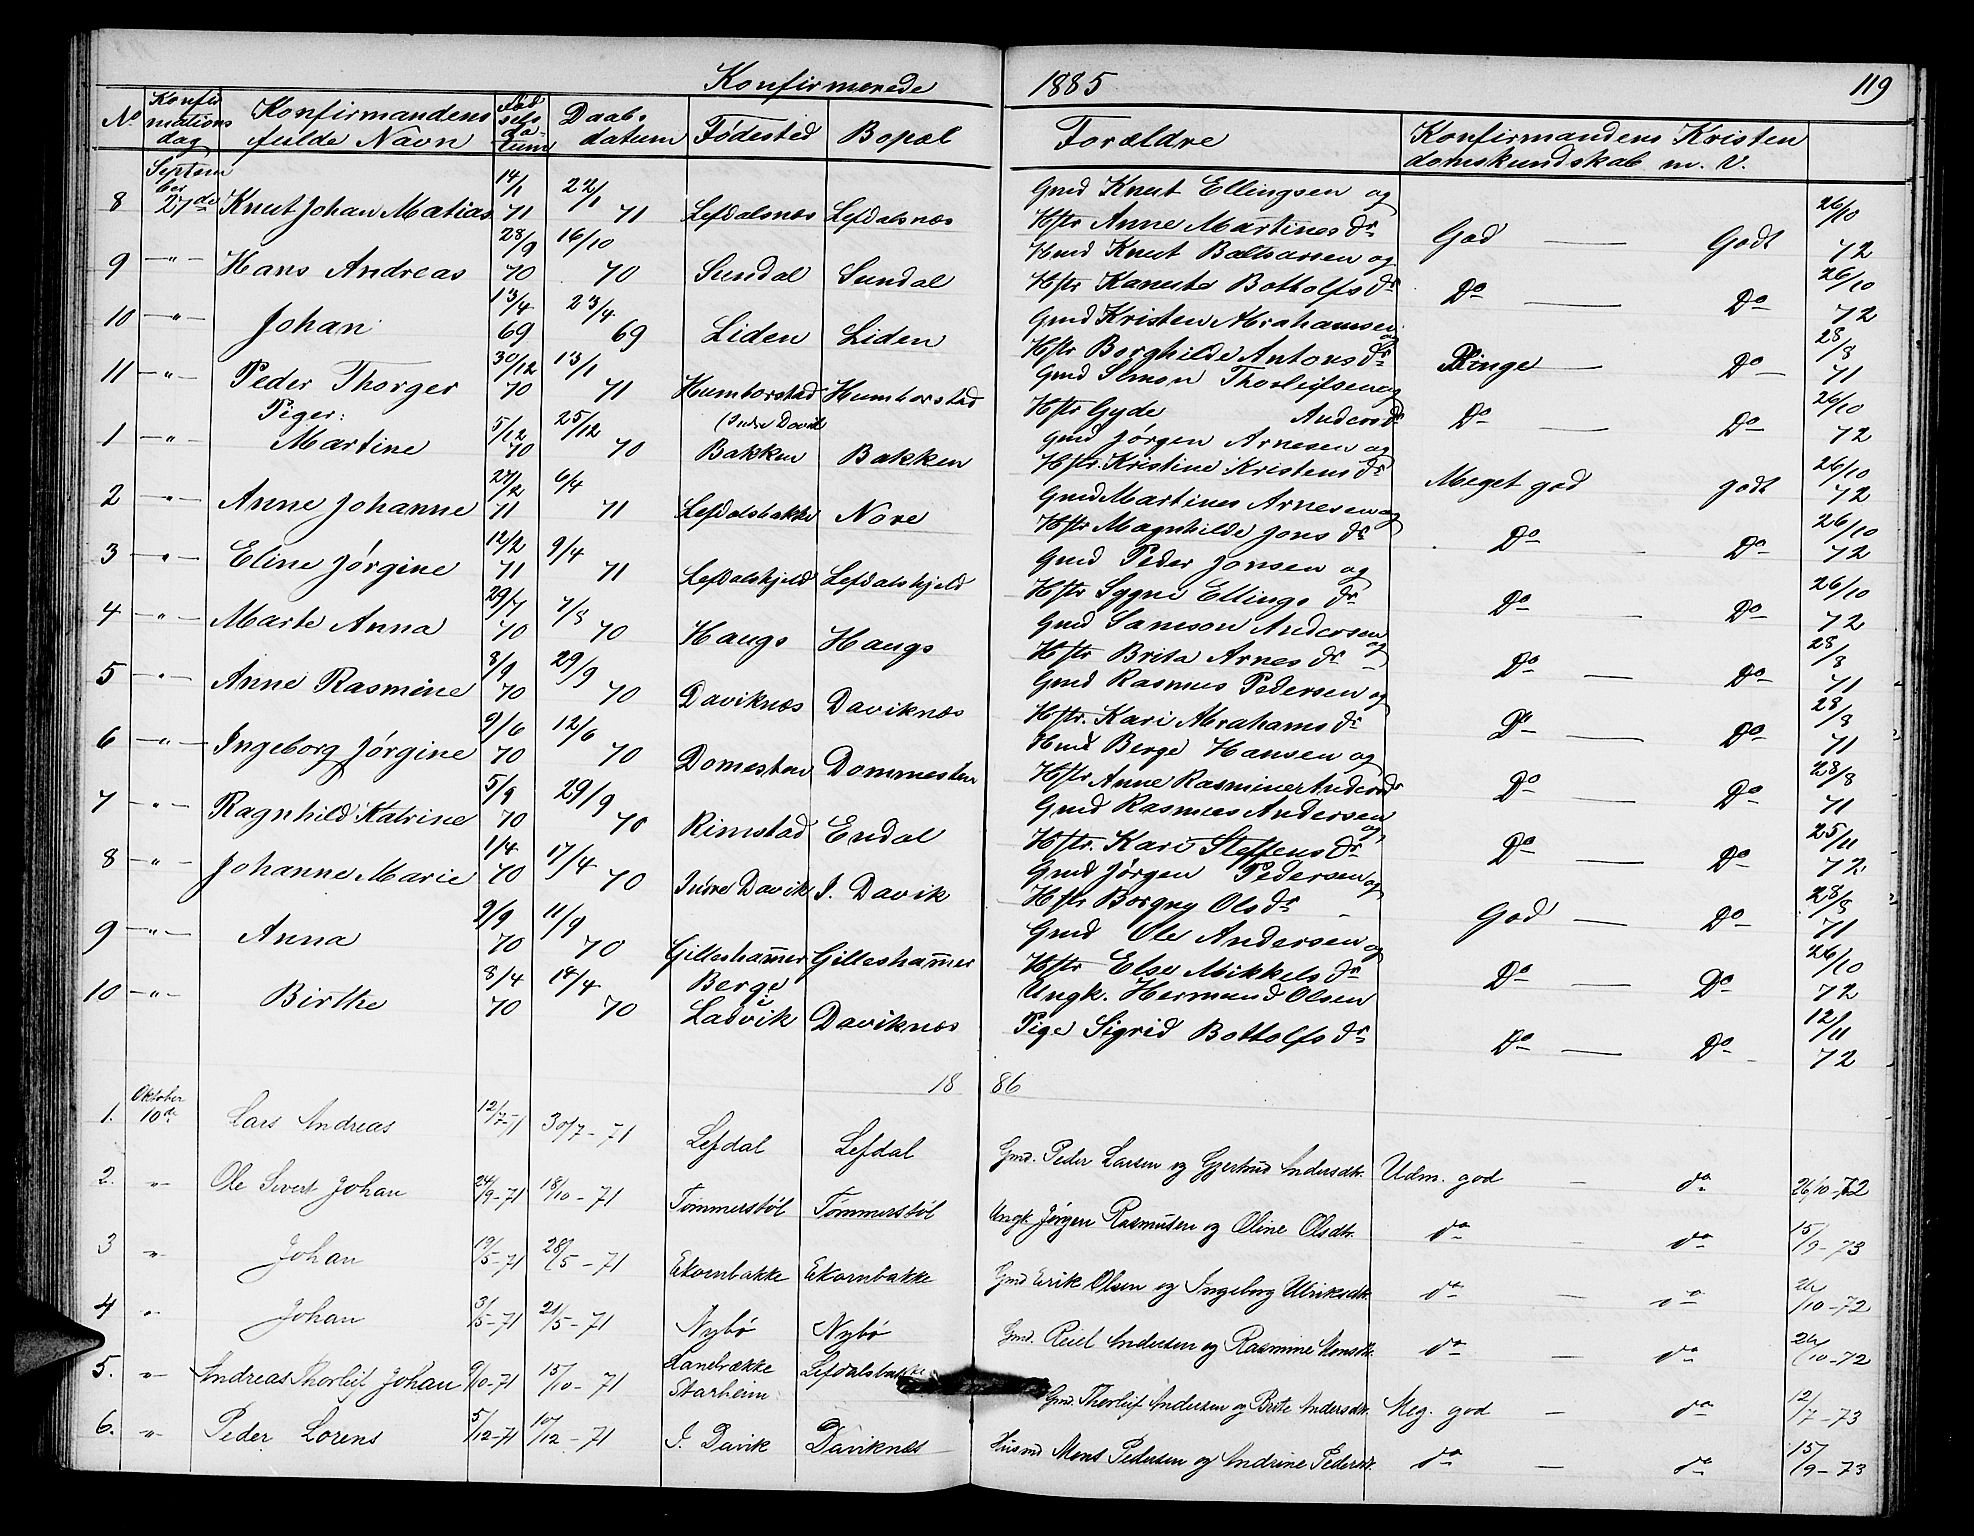 Konfirmerede 1885 119
No Konfirmationsdag Konfirmandens fulde Navn Fødselsdatum Daabsdatum Fødested Bopæl Forældre Konfirmandens Kristendomskundskab m. V.
8 September 27de Knut Johan Matias 14/1 71 22/1 71 Lefdalsnæs Lefdalsnæs Gmd Knut Ellingsen og Hstr Anne Martines dr God — Godt 26/10 72
9 —"— Hans Andreas 28/9 70 16/10 70 Sundal Sundal Hmd Knut Baltsarsen og Hstr Kanute Bottolfs dr Do — Do 26/10 72
10 —"— Johan 13/4 69 23/4 69 Liden Liden Gmd Kristen Abrahamsen og Hstr Borghilde Antons dr Ringe — Do — 28/8 71
11 —"— Peder Thorger 30/12 70 13/1 71 Humborstad Humborstad Gmd Simon Thorleifsen og Hstr Gyde Anders dr Do — Do 26/10 72
Piger:
1 —"— Martine 5/12 70 25/12 70 (Indre Davik) Bakken Bakken Gmd Jørgen Arnesen og Hstr. Kristine Kristens dr Meget god godt 26/10 72
2 —"— Anne Johanne 27/2 71 6/4 71 Lefdalsbakke Nore Gmd Martines Arnesen og Hstr Magnhilde Jons dr Do Do 26/10 72
3 —"— Eline Jørgine 12/2 71 9/4 71 Lefdalskjeld Lefdalskjeld Gmd Peder Jonsen og Hstr Sygni Ellings dr Do Do 26/10 72
4 —"— Marte Anna 29/7 70 7/8 70 Haugs Haugs Gmd Samson Andersen og Hstr Brita Arnes dr Do — Do 28/8 71
5 —"— Anne Rasmine 8/9 70 29/9 70 Daviknæs Daviknæs Gmd Rasmus Pedersen og Hstr. Kari Abrahams dr Do — Do 28/8 71
6 —"— Ingeborg Jørgine 2/6 70 12/6 70 Domesten Dommesten Hmd Berge Hansen og Hstr Anne Rasmine Anders dr Do — Do 28/8 71
7 —"— Ragnhild Katrine 5/9 70 29/9 70 Rimstad Endal Gmd Rasmus Andersen og Hstr. Kari Steffens dr Do — Do 25/11 72
8 —"— Johanne Marie 1/4 70 17/4 70 Indre Davik I. Davik Gmd Jørgen Pedersen og Hstr Borgny Ols dr God — Do 28/8 71
9 —"— Anna 2/9 70 11/9 70 Gillesham̄er Gillesham̄er Gmd Ole Andersen og Hstr Else Mikkels dr Do — Do 26/10 72
10 —"— Birthe 8/4 70 18/4 70 Berge i Ladvik Daviknæs Ungk. Hermund Olsen Pige Sigrid Bottolfs dr Do — Do 12/11 72
1886
1. Oktober 10de Lars Andreas 12/7-71 30/7-71 Lefdal Lefdal Gmd. Peder Larsen og Gjertrud Andersdtr. Udm. god — do 26/10-72
2. " Ole Sivert Johan 24/9-71 18/10-71 Tømmerstøl Tømmerstøl Ungk. Jørgen Rasmusen og Oline Olsdtr. do — do 15/9-73
3 " Johan 19/5-71 28/5-71 Ekornbakke Ekornbakke Gmd Erik Olsen og Ingeborg Ulriksdtr. do — do 26/10-72
4 " Johan 3/5-71 21/5-71 Nybø Nybø Gmd. Reiel Andersen og Rasmine Monsdtr. do — do 26/10-72
5. " Andreas Thorleif Johan 9/10-71 15/10-71 Lanebrække Starheim Lefdalsbakke Gmd. Thorleif Andersen og Brite Andersdtr. Meg. god — do 12/7-73
6. " Peder Lorens 5/12-71 10/12-71 I. Davik Daviknæs Husmd Mons Pedersen og Andrine Pedersdtr. do — do 15/9-73